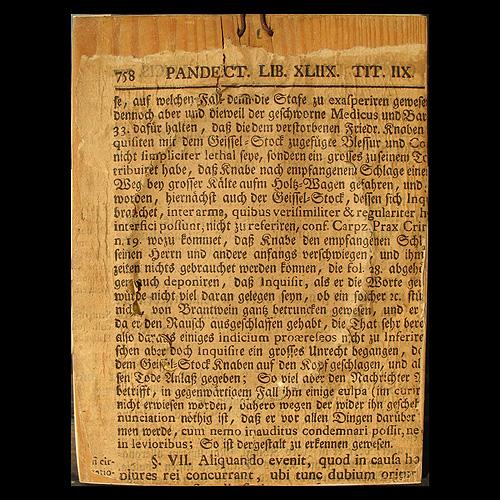 758 PANDECT. LIB. XLIIX. TIT. IIX.
se, auf welchen Fall denn die Stafe zu exasperiren gewese
dennoch aber und dieweil der geschworne Medicus und Bar
33. dafür halten, daß die dem verstorbenen Friedr. Knaben
quisiten mit dem Geissel-Stock zugefügte Blessur und Co
nicht simpliciter lethal seye, sondern ein grosses zu seinem To
tribuiret habe, daß Knabe nach empfangenem Schlage eine
Weg bey grosser Kälte aufm Holtz-Wagen gefahren, und
worden, hiernächst auch der Geissel-Stock, dessen sich Inq
brauchet, inter arma, quibus verisimiliter & regulariter h
interfici possunt, nicht zu referiren, conf. Carpz. Prax. Crir
n. 19. wozu kommet, daß Knabe den empfangenen Schl
seinen Herrn und andere anfangs verschwiegen und ihm
zeiten nichts gebrauchet werden können, die fol. 28. abgehi
ger auch deponiren, daß Inquisit, als er die Worte ge
würde nicht viel daran gelegen seyn, ob ein solcher rc. stü
nicht von Brantwein gantz betruncken gewesen, und er
da er den Rausch ausgeschlaffen gehabt, die That sehr bere
also daraus einiges indicium proæreseos nicht zu inferire
schen aber doch Inquisite ein grosses Unrecht begangen, da
dem Geissel-Stock Knaben auf den Kopf geschlagen, und al
sen Tode Anlaß gegeben; So viel aber den Nachrichter
betrifft, in gegenwärtigem Fall ihm einige culpa (im curir
nicht erwiesen worden, dahero wegen der wider ihn geschek
nunciation nöthig ist, daß er vor allen Dingen darüber
men werde, cum nemo inauditus condemnari possit, ne
in levioribus; So ist dergestalt zu erkennen gewesen.
§. VII. Aliquando evenit, quod in causa ho
plures rei concurrant, ubi tunc dubium oritur